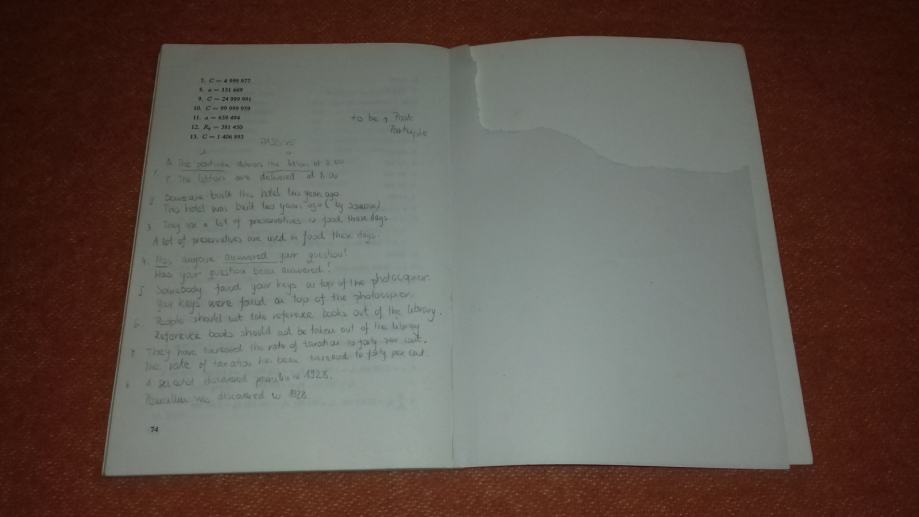 7. C = 4 999 977
8. a = 331 669
9. C = 24 999 991
10. C = 99 999 959
11. a = 659 494
12. = 381 450
13. C = 1 406 593
to be + Past
Participle
PASSIVE
A. The postman delivers the letters at 8.00
P. The letters are delivered at 8.00
2. Someone built this hotel two years ago
This hotel was built two years ago (by someone)
3. They use a lot of preservatives in food these days
A lot of preservatives are used in food these days.
4. Has anyone answered your question?
Has your question been answered?
5. Somebody found your keys on top of the photocopier.
Your keys were found on top of the photocopier.
6. People should not take reference books out of the library.
Reference books should not be taken out of the library
They have increased the rate of taxation to forty per cent.
The rate of taxation has been increased to forty per cent.
A scientist discovered penicillin in 1928.
Penicillin was discovered in 1928
74